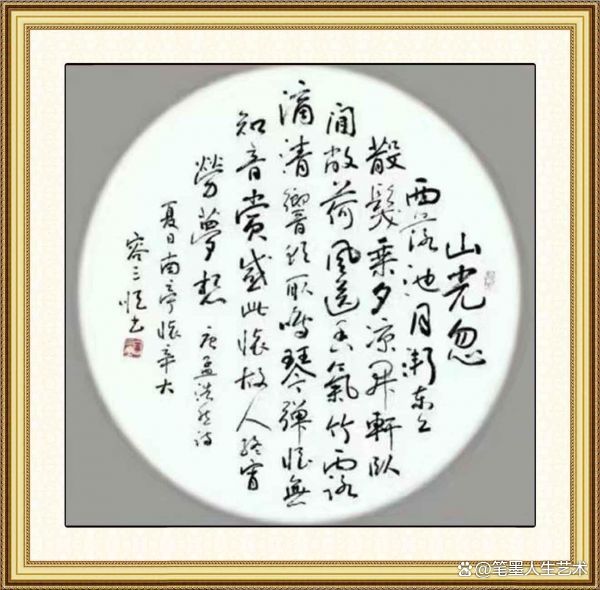 山光忽
西落池月漸東上
散髮乘夕涼开軒臥
閒敞荷風送香氣竹露
滴清響欲取鳴琴彈恨無
知音賞感此懷故人終宵
勞夢想 唐孟浩然詩
夏日南亭懷辛大
容三恒书
@笔墨人生艺术